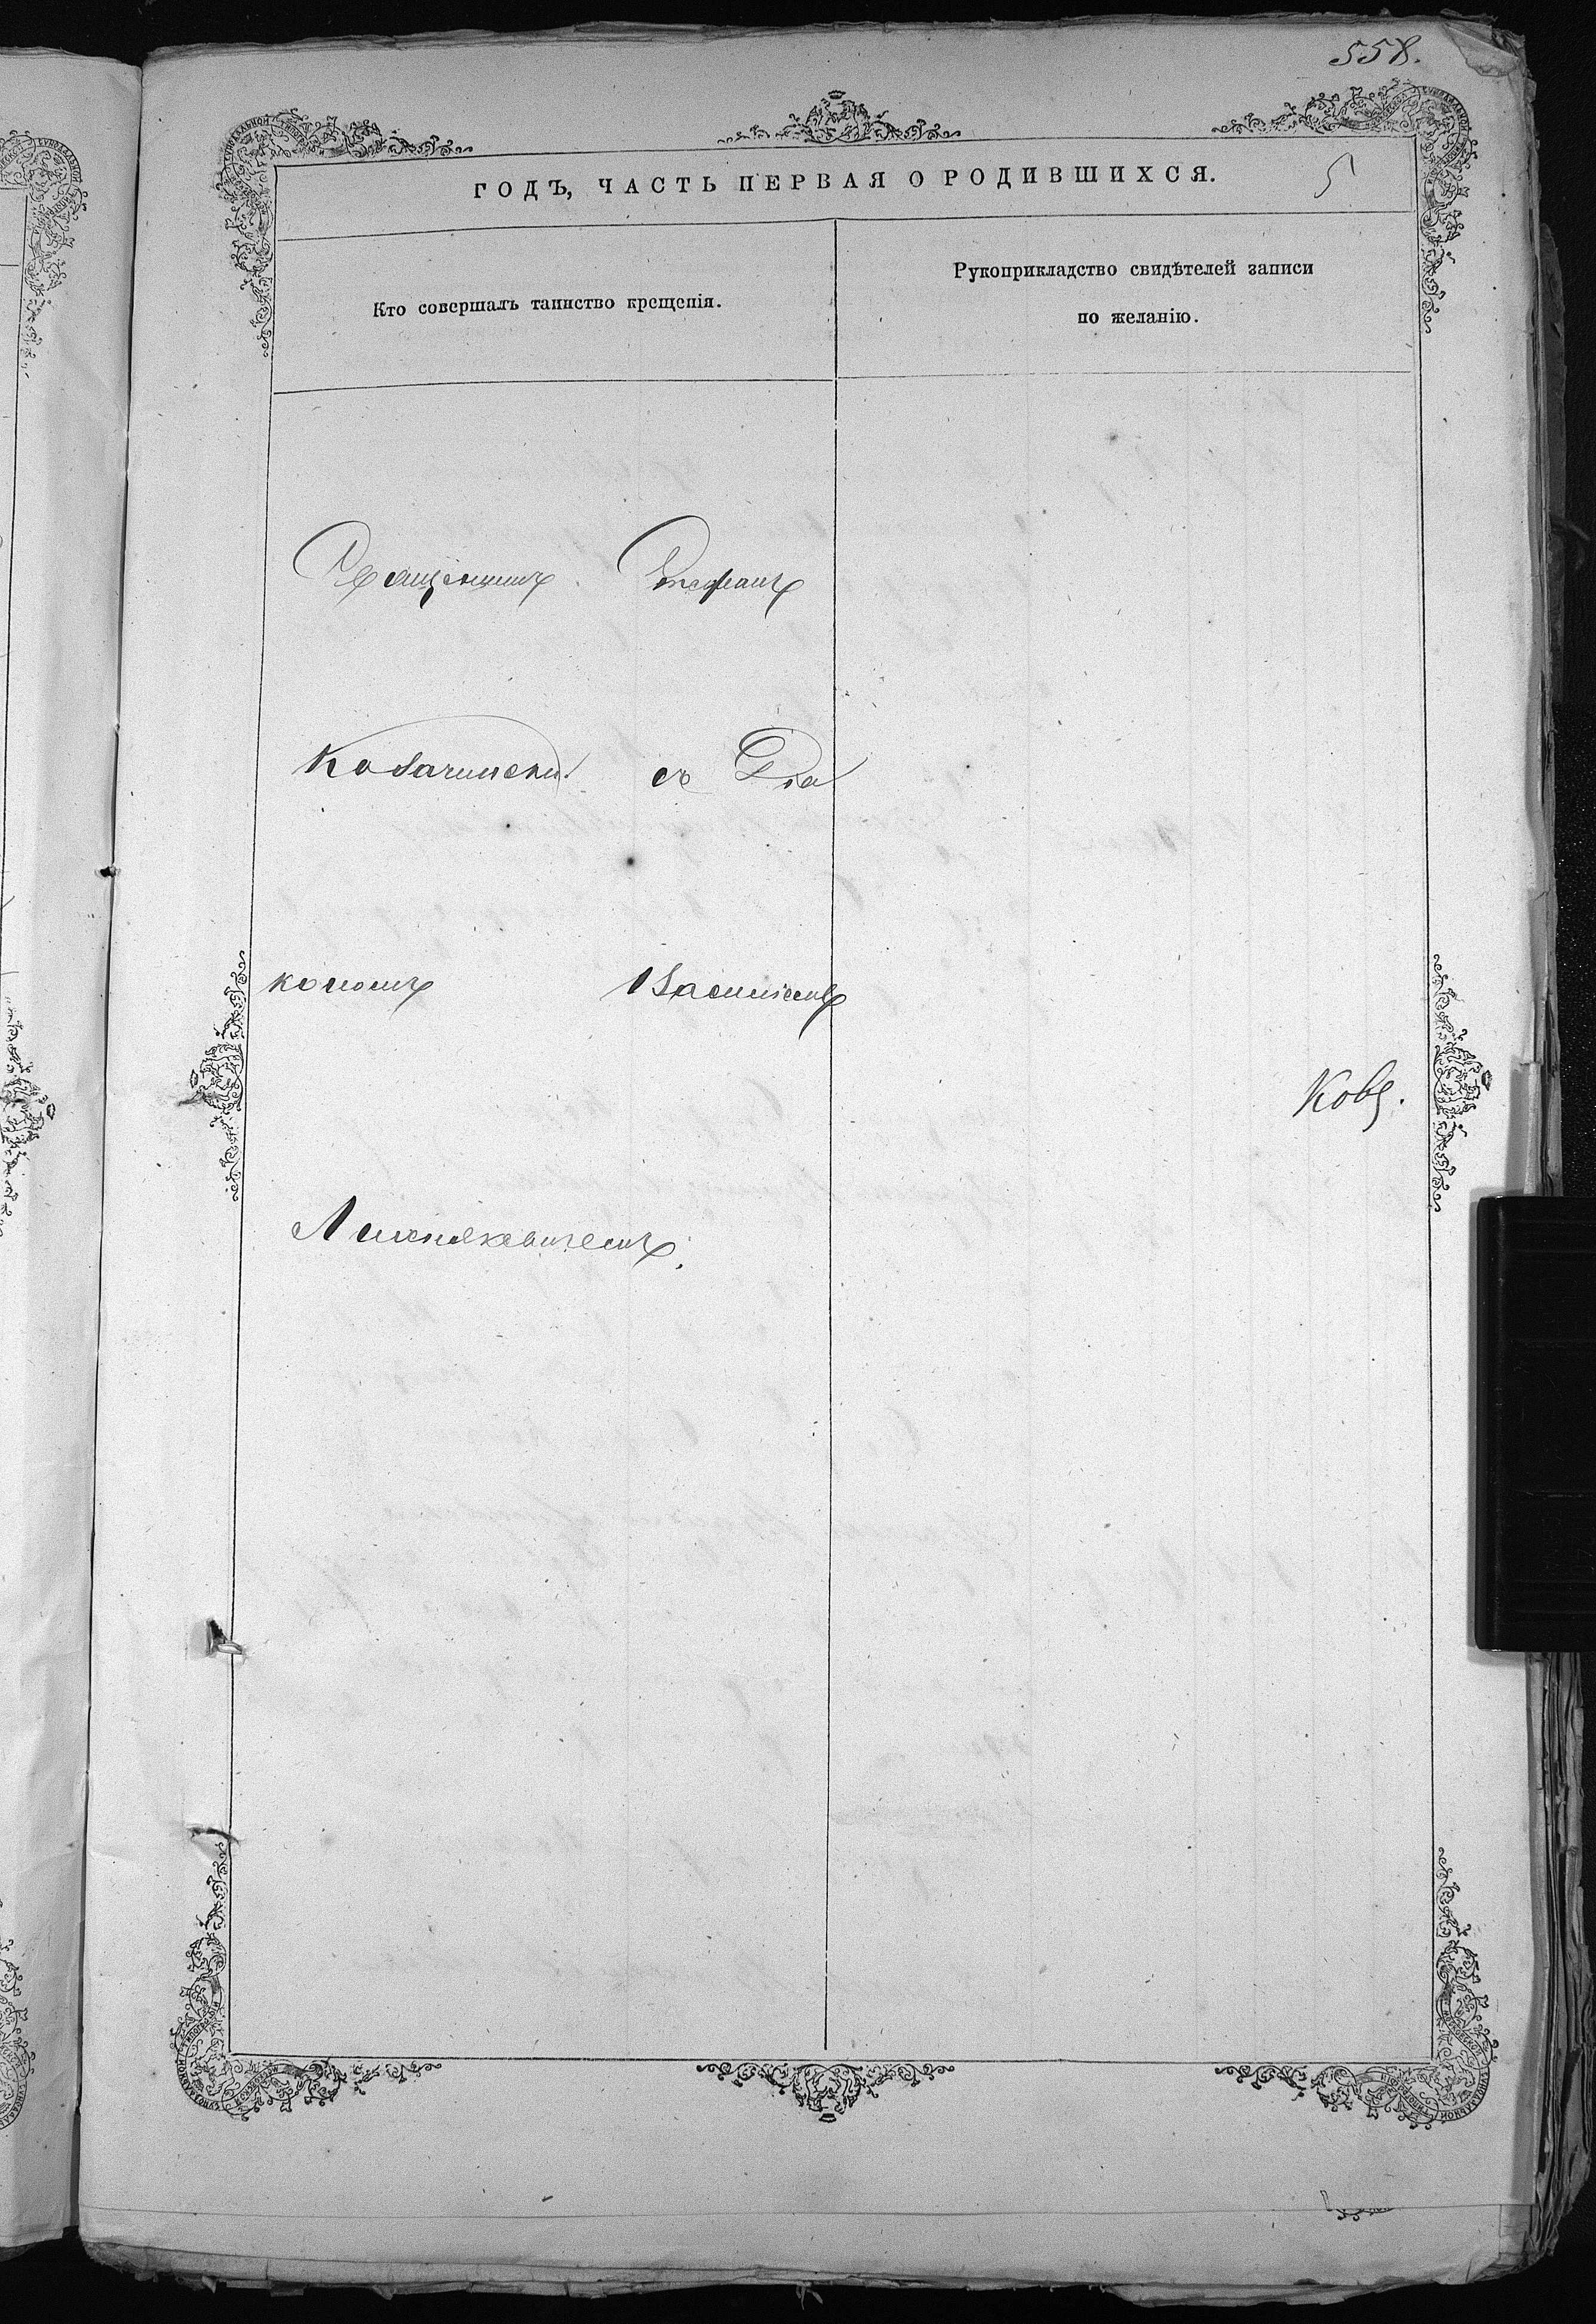 558.
ГОДЪ, ЧАСТЬ ПЕРВАЯ О РОДИВШИХСЯ. 5
Кто совершалъ таинство крещенія.
Рукоприкладство свидѣтелей записи
по желанію.
Священникъ Стефанъ
съ Діа
кономъ Василіемъ
Ковѣ.